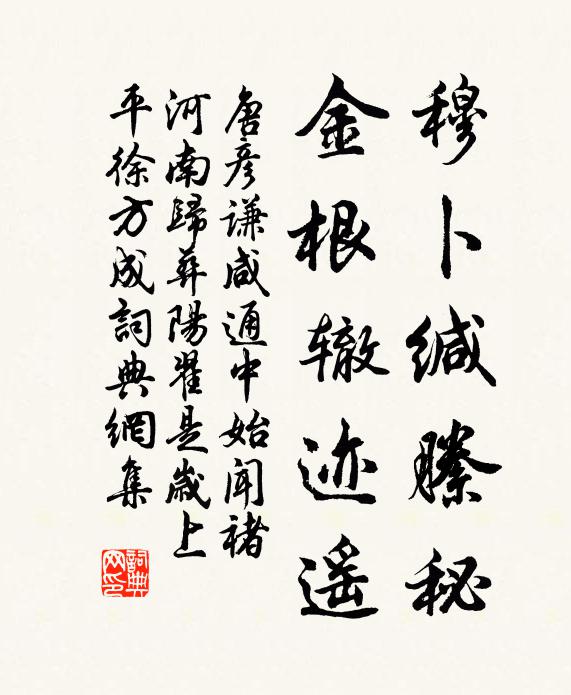 穆卜缄縢秘
金根辙迹遥
唐彦谦咸通中始闻褚
河南歸葬陽翟是歲上
平徐方成詞典網集
詞典
网印